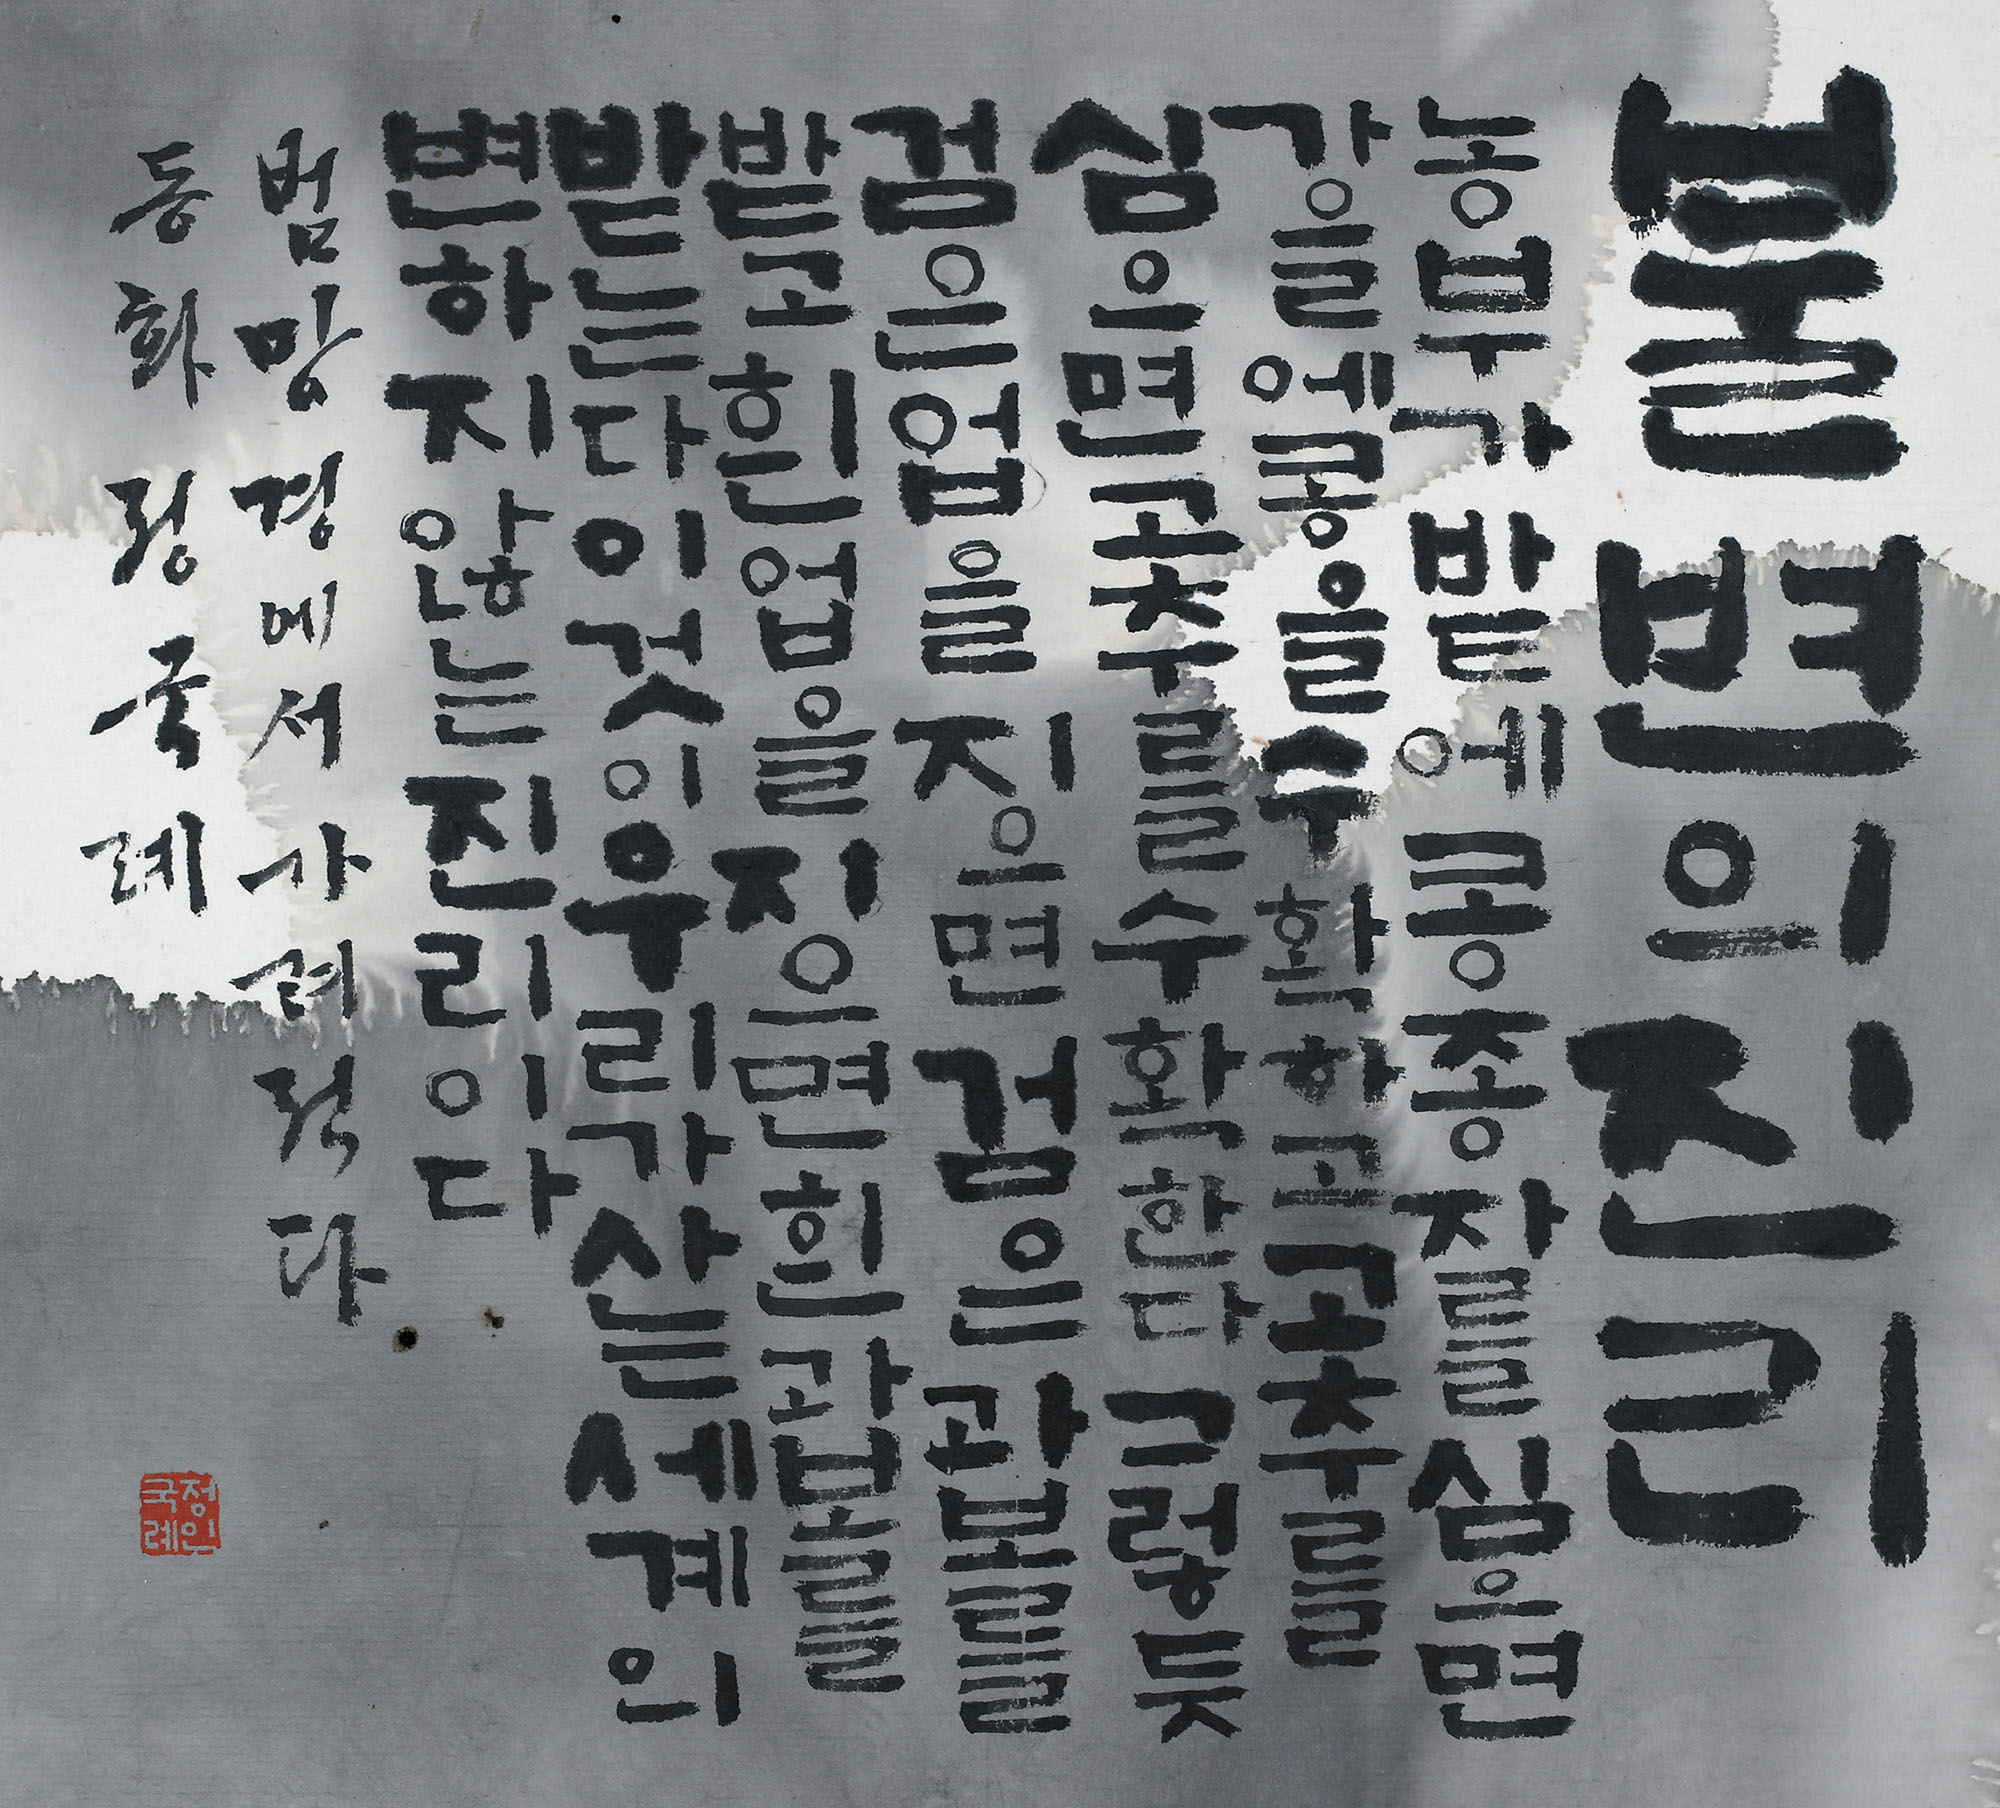 불변의진리
농부가밭에콩종자를심으면
가을에콩을수확하고고추를
심으면고추를수확한다그렇듯
검은업을지으면검은과보를
받고흰업을지으면흰과보를
받는다이것이우리가사는세계의
변하지않는진리이다
범망경에서가려적다
동화정국례
정인
국례